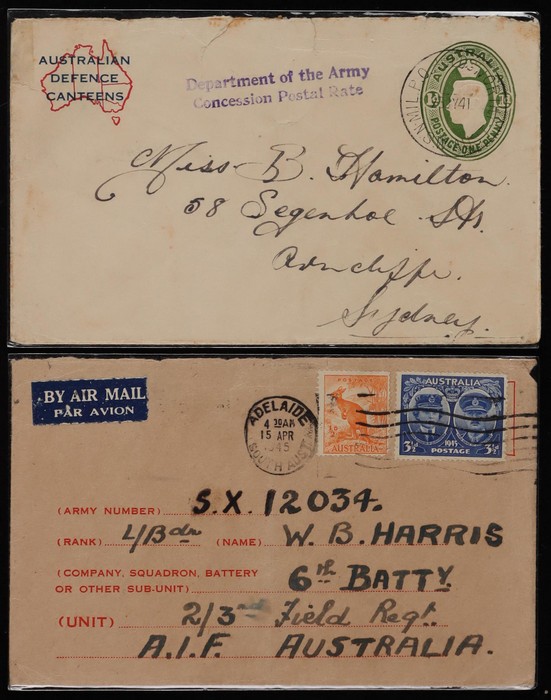 AUSTRALIAN
DEFENCE
CANTEENS
Department of the Army
Concession Postal Rate
AUSTRALIA
POSTAGE ONE PENNY
MIL. P.O.
Miss B. Hamilton.
58 Segenhoe Str.
Arncliffe.
Sydney.
BY AIR MAIL
PAR AVION
ADELAIDE
4 30AM
15 APR
SOUTH AUST
AUSTRALIA
AUSTRALIA
1945
3½d POSTAGE 3½d
(ARMY NUMBER) S.X. 12034.
(RANK) L/Bdr (NAME) W. B. HARRIS
(COMPANY, SQUADRON, BATTERY
OR OTHER SUB-UNIT) 6th BATTY.
(UNIT) 2/3rd Field Regt.
A.I.F. AUSTRALIA.